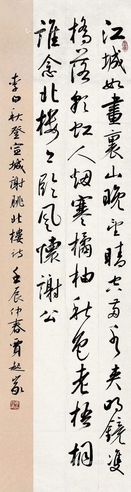 江城如畫裏山晚望晴空兩水夾明鏡雙
橋落彩虹人烟寒橘柚秋色老梧桐
誰念北樓上臨風懷謝公
李白秋登宣城謝朓北樓詩 壬辰仲春賈起家